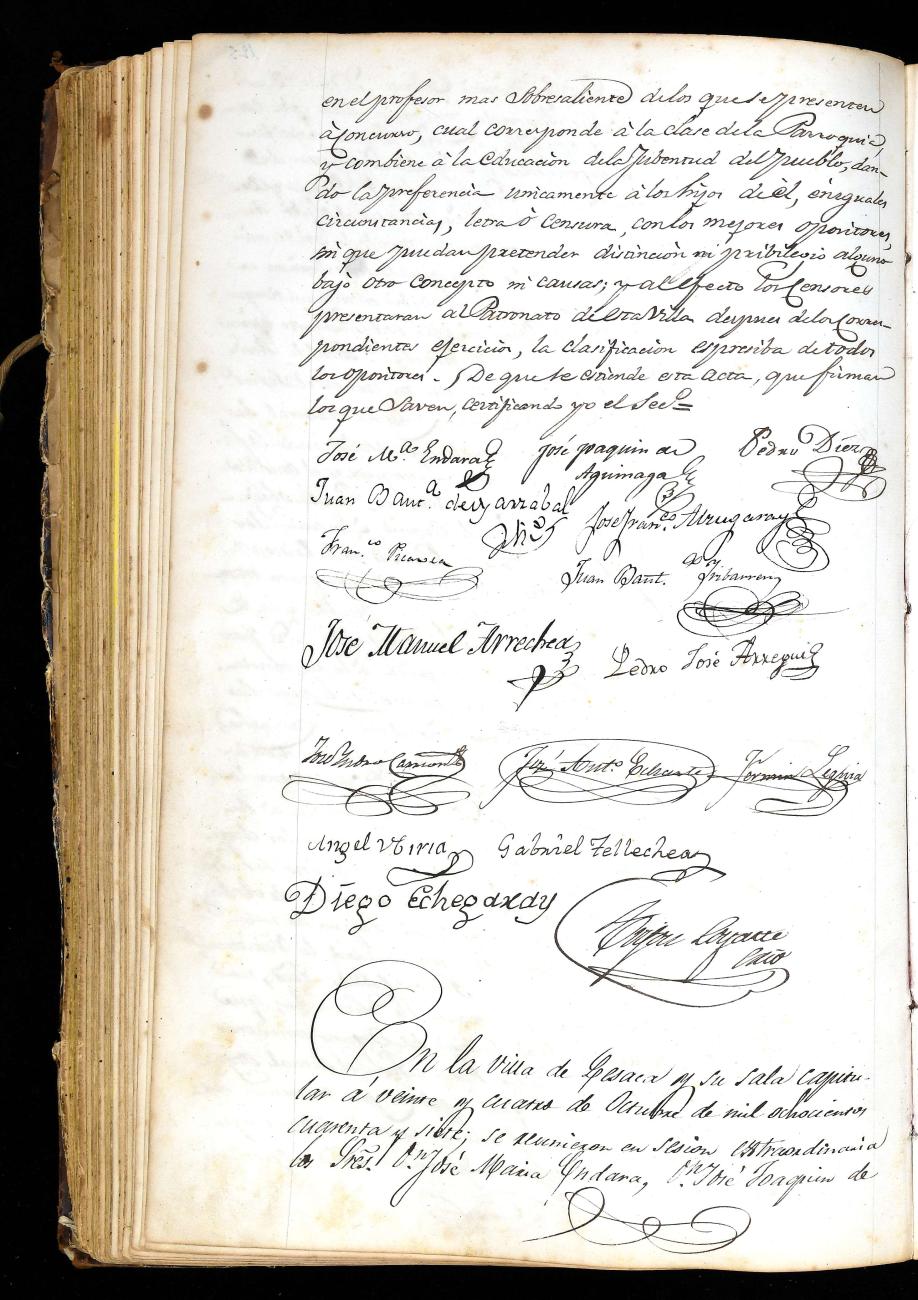 en el profesor mas sobresaliente de los que se presenten
à Concurso, cual corresponde à la clase de la Parroquia,
y combiene à la educacion de la Jubentud del Pueblo, dan-
do la preferencia unicamente à los hijos de èl, en iguales
circunstancias, letra ò censura, con los mejores opositores,
sin que puedan pretender distincion ni pribilegio alguno
bajo otro concepto ni causas; y al efecto los Censores
presentaran al Patronato de esta Villa despues de los Corres-
pondientes egercicios, la clasificacion espresiba de todos
los opositores. De que se estiende esta acta, que firman
los que Saven, certificando yo el Sec.º=
José M.ª Endara José Joaquin de Pedro Diez
Aguinaga
Juan Baut.ª de Yarzabal
José Fran.co Alzugaray
Fran.co Picavea
Juan Baut.ª Iribarren
José Manuel Arrechea
Pedro José Arregui
José Pedro José Ant.º Echarte Fermin Leguia
Angel Miria Gabriel Tellechea
Diego Echegaray
Loyarte
En la villa de Lesaca y su sala capitu-
lar á veinte y cuatro de Octubre de mil ochocientos
cuarenta y siete; se reunieron en sesion extraordinaria
los Sres. D.n José Maria Endara, D.n José Joaquin de